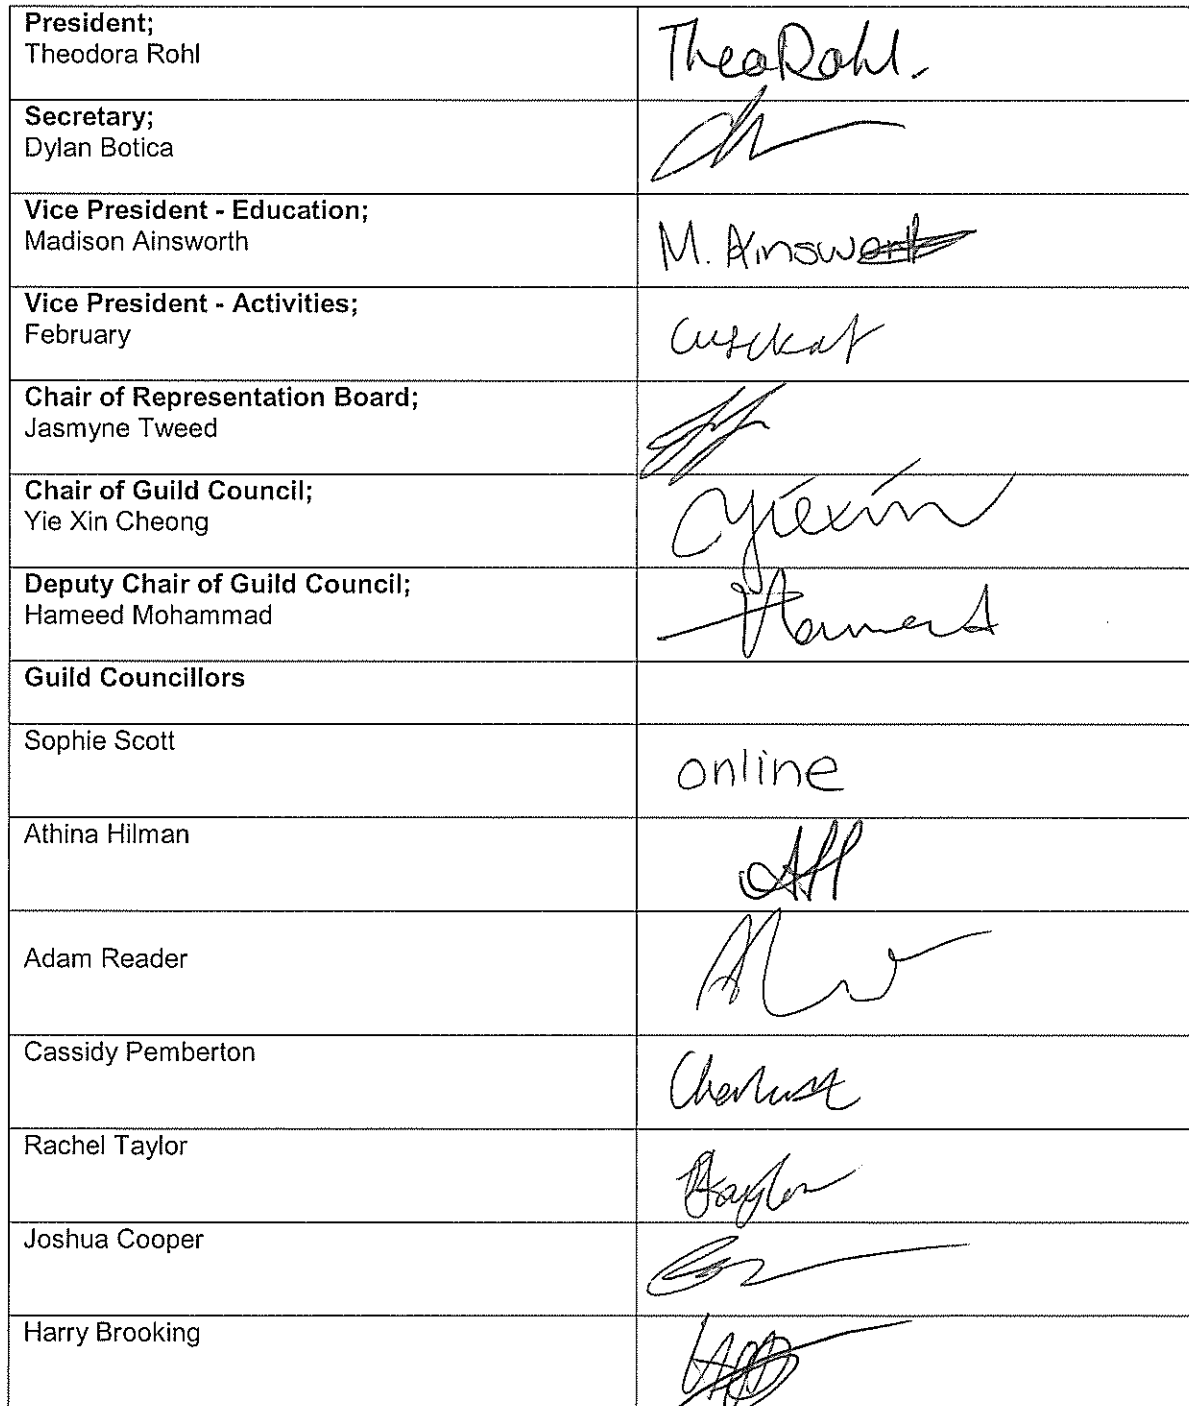 President;
Theodora Rohl
TheaRohl.
Secretary;
Dylan Botica
Vice President - Education;
Madison Ainsworth
M. Ainsworth
Vice President - Activities;
February
Chair of Representation Board;
Jasmyne Tweed
Chair of Guild Council;
Yie Xin Cheong
Cyiexin
Deputy Chair of Guild Council;
Hameed Mohammad
Guild Councillors
Sophie Scott
online
Athina Hilman
Adam Reader
Cassidy Pemberton
Rachel Taylor
Joshua Cooper
Harry Brooking